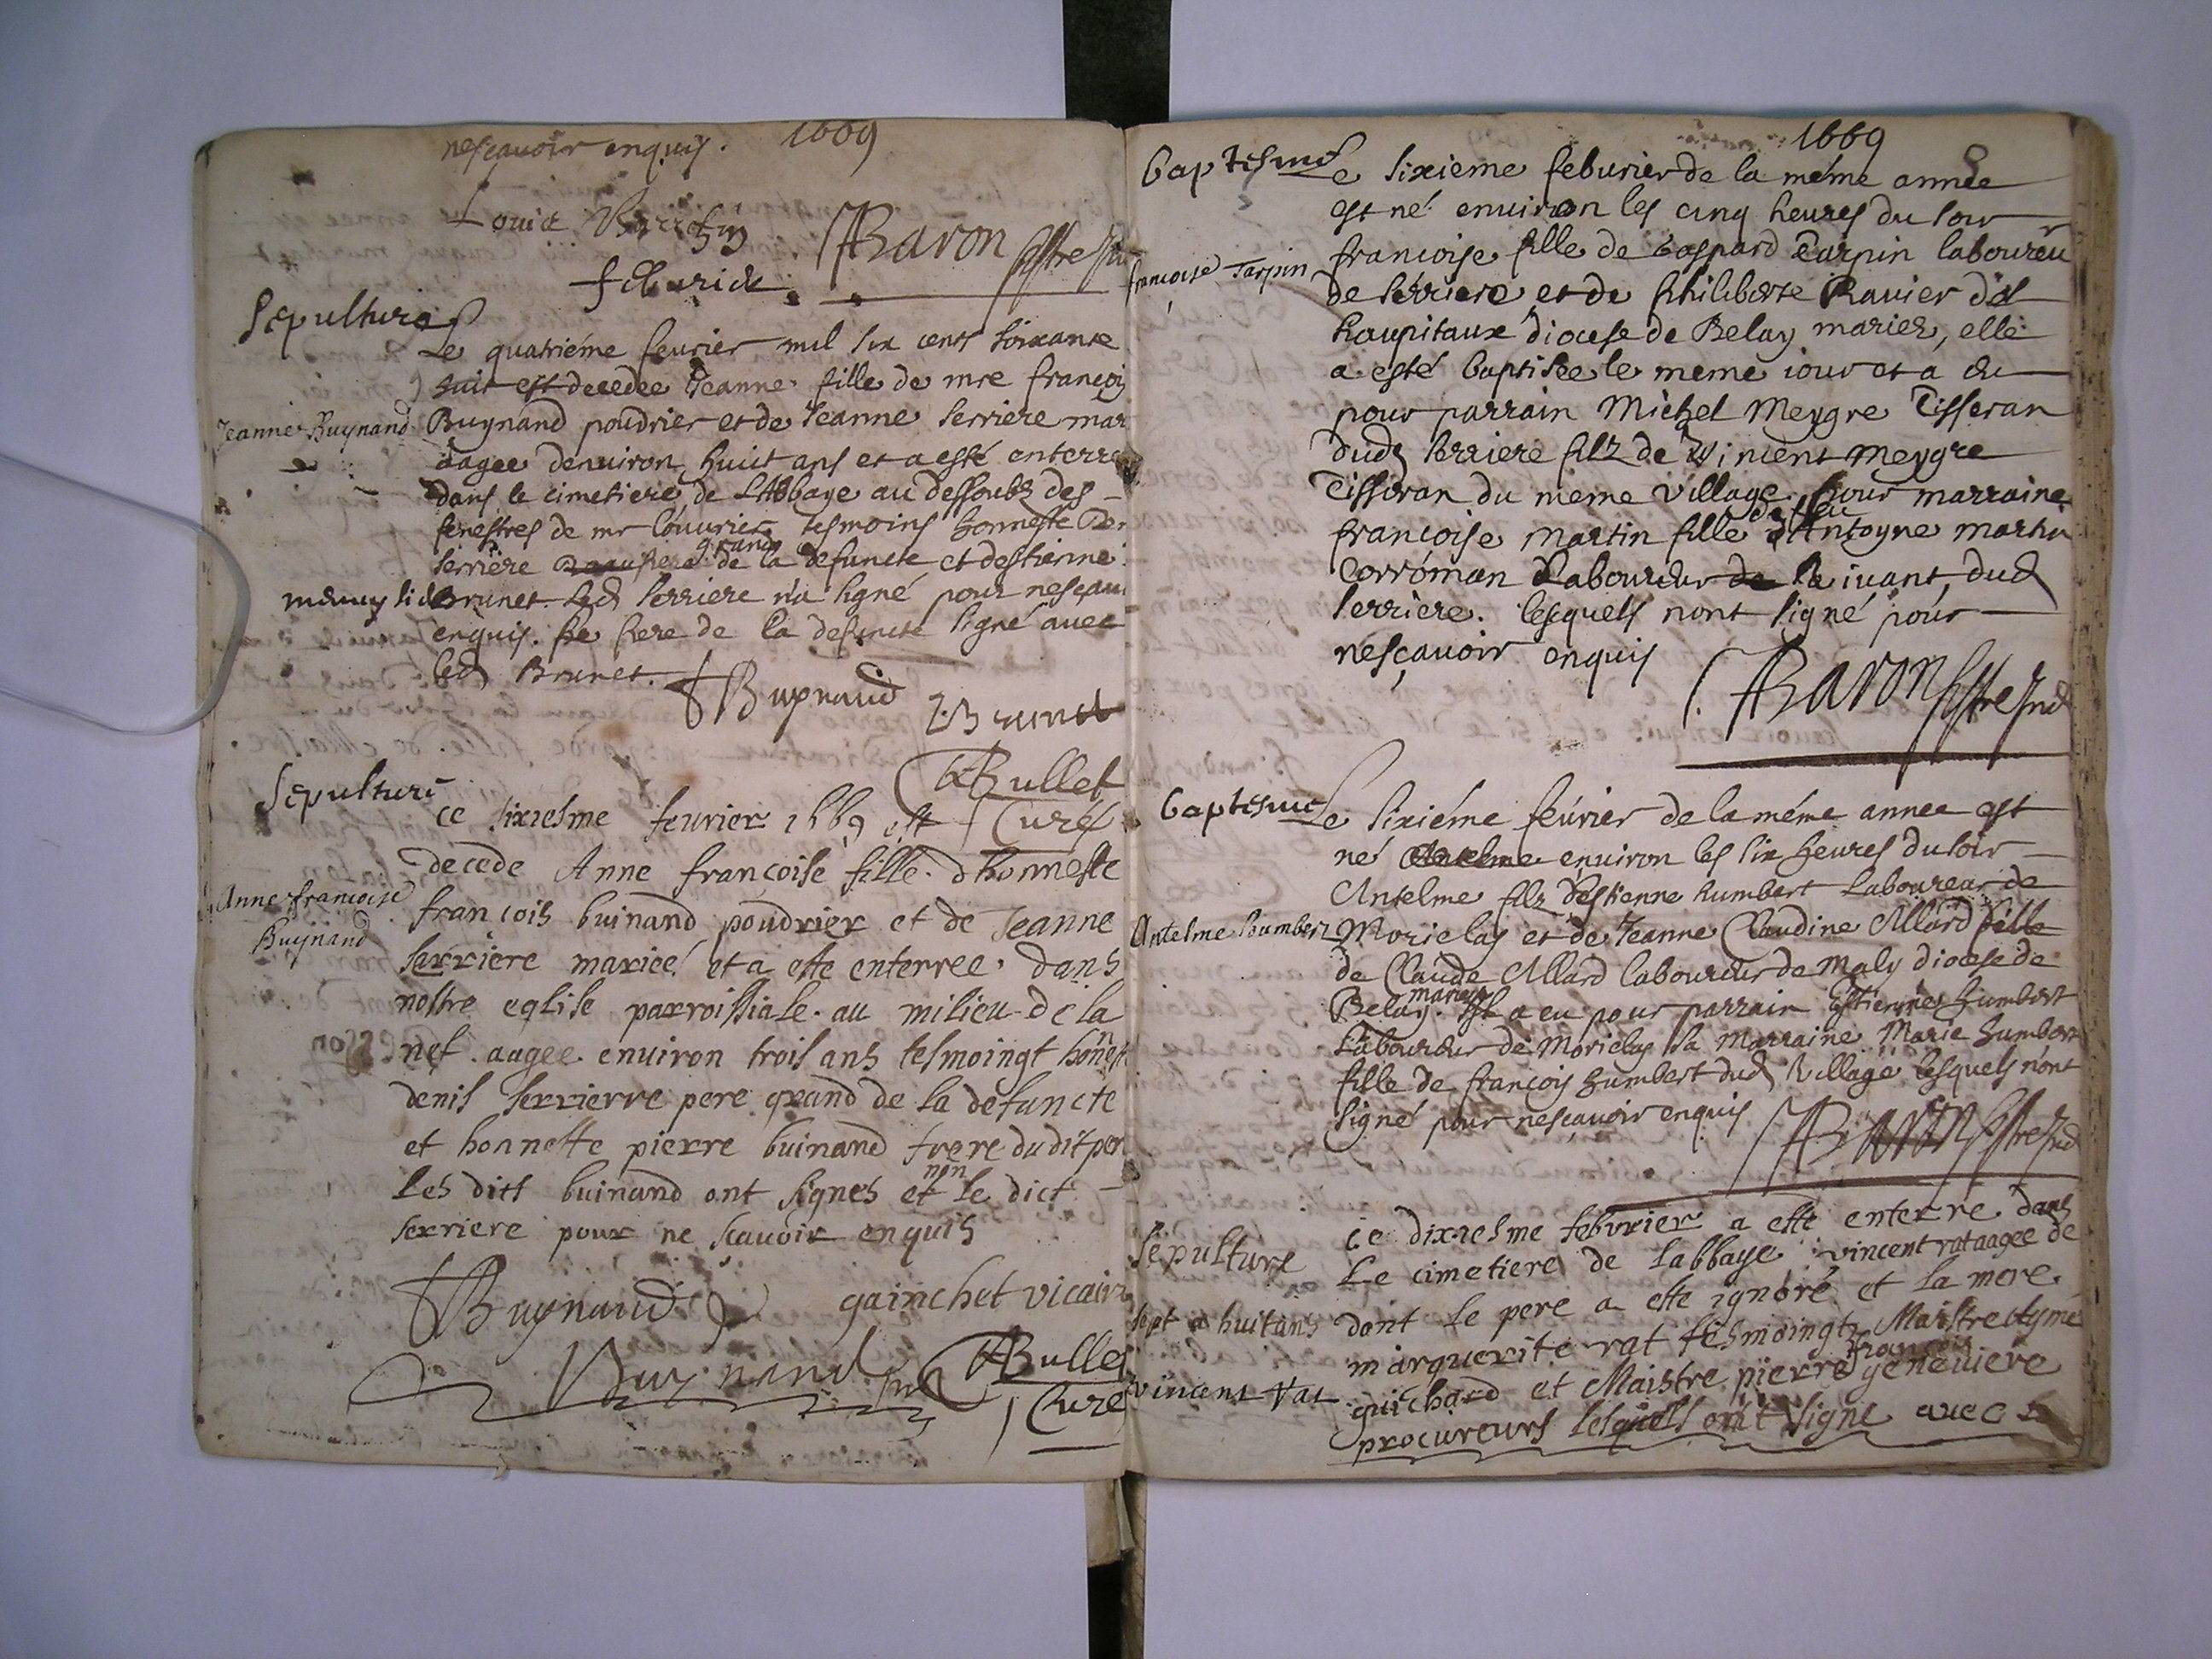 nesçavoir enquis. 1669
Louis
Baron pstre
Sepulture
Le quatriéme feurier mil six cents soixante
huit est decedee Jeanne fille de mre françois
Jeanne Buynand
Buynand poudrier et de Jeanne serriere mar
aagee denuiron huict ans et a esté enterre
dans le cimetiere de L'Abbaye au dessoubz des
fenestres de mr l'ouurier tesmoins honneste Den
serriere grand pere de la defuncte et destienne
Brunet. Led serriere n'a signé pour nesçauoi
enquis. Le pere de la defuncte signé auec
led Brunet.
Buynand Brunet
Bullet
Curé
Sepulture
ce sixiesme feurier 1669 est
decede Anne françoise fille d'honneste
Anne francoise
Buynand
françois buinand poudrier et de Jeanne
serriere marieé et a este enterree dans
nostre eglise parroissiale au milieu de la
nef aagee enuiron trois ans tesmoingt honest
denis serrierre pere grand de la defuncte
et honneste pierre buinand frere dudit pere
Les dits buinand ont signes et non le dict
serriere pour ne scauoir enquis
Buynand gainchet vicaire
Buynand Bullet
Curé
1669
8
Baptesme
Le sixieme feburier de la méme année
est né enuiron les cinq heures du soir
francoise Tarpin
françoise fille de Gaspard Tarpin laboureu
de serriere et de philiberte Rauier d'ol
haupitaux diocese de Belay mariez, elle
a esté baptisée le meme iour et a eu
pour parrain Michel Meygre Tisseran
dud serriere filz de Vincent Meygre
Tisseran du meme village. pour marraine
françoise martin fille de feu Antoyne martin
Corroman Laboureur de la iuant, dud
serriere. lesquels nont signé pour
nesçavoir enquis
Baron pstre Ind
Baptesme
Le sixiéme féurier de la méme annee est
né Anselme enuiron les six heures du soir
Antelme filz d'Estienne humbert Laboureur de
Antelme humbert
Morielas et de Jeanne Claudine Allard fille
de Claude Allard laboureur de Maly diocese de
Belay. mariez Il a eu pour parrain Estienne humbert
Laboureur de Morielas sa marraine Marie humbert
fille de françois humbert dud Village lesquels n'ont
signé pour nesçavoir enquis
Baron pstre Ind
Sepulture
ce dixiesme febvrier a esté enterre dans
Le cimetiere de Labbaye vincent rat aagee de
sept a huit ans dont le pere a este ignoré et la mere
marguerite rat tesmoingtz Maistre Aymé
vincent rat
guichard et Maistre pierre françois geneuiere
procureurs lesquels ont signe auec